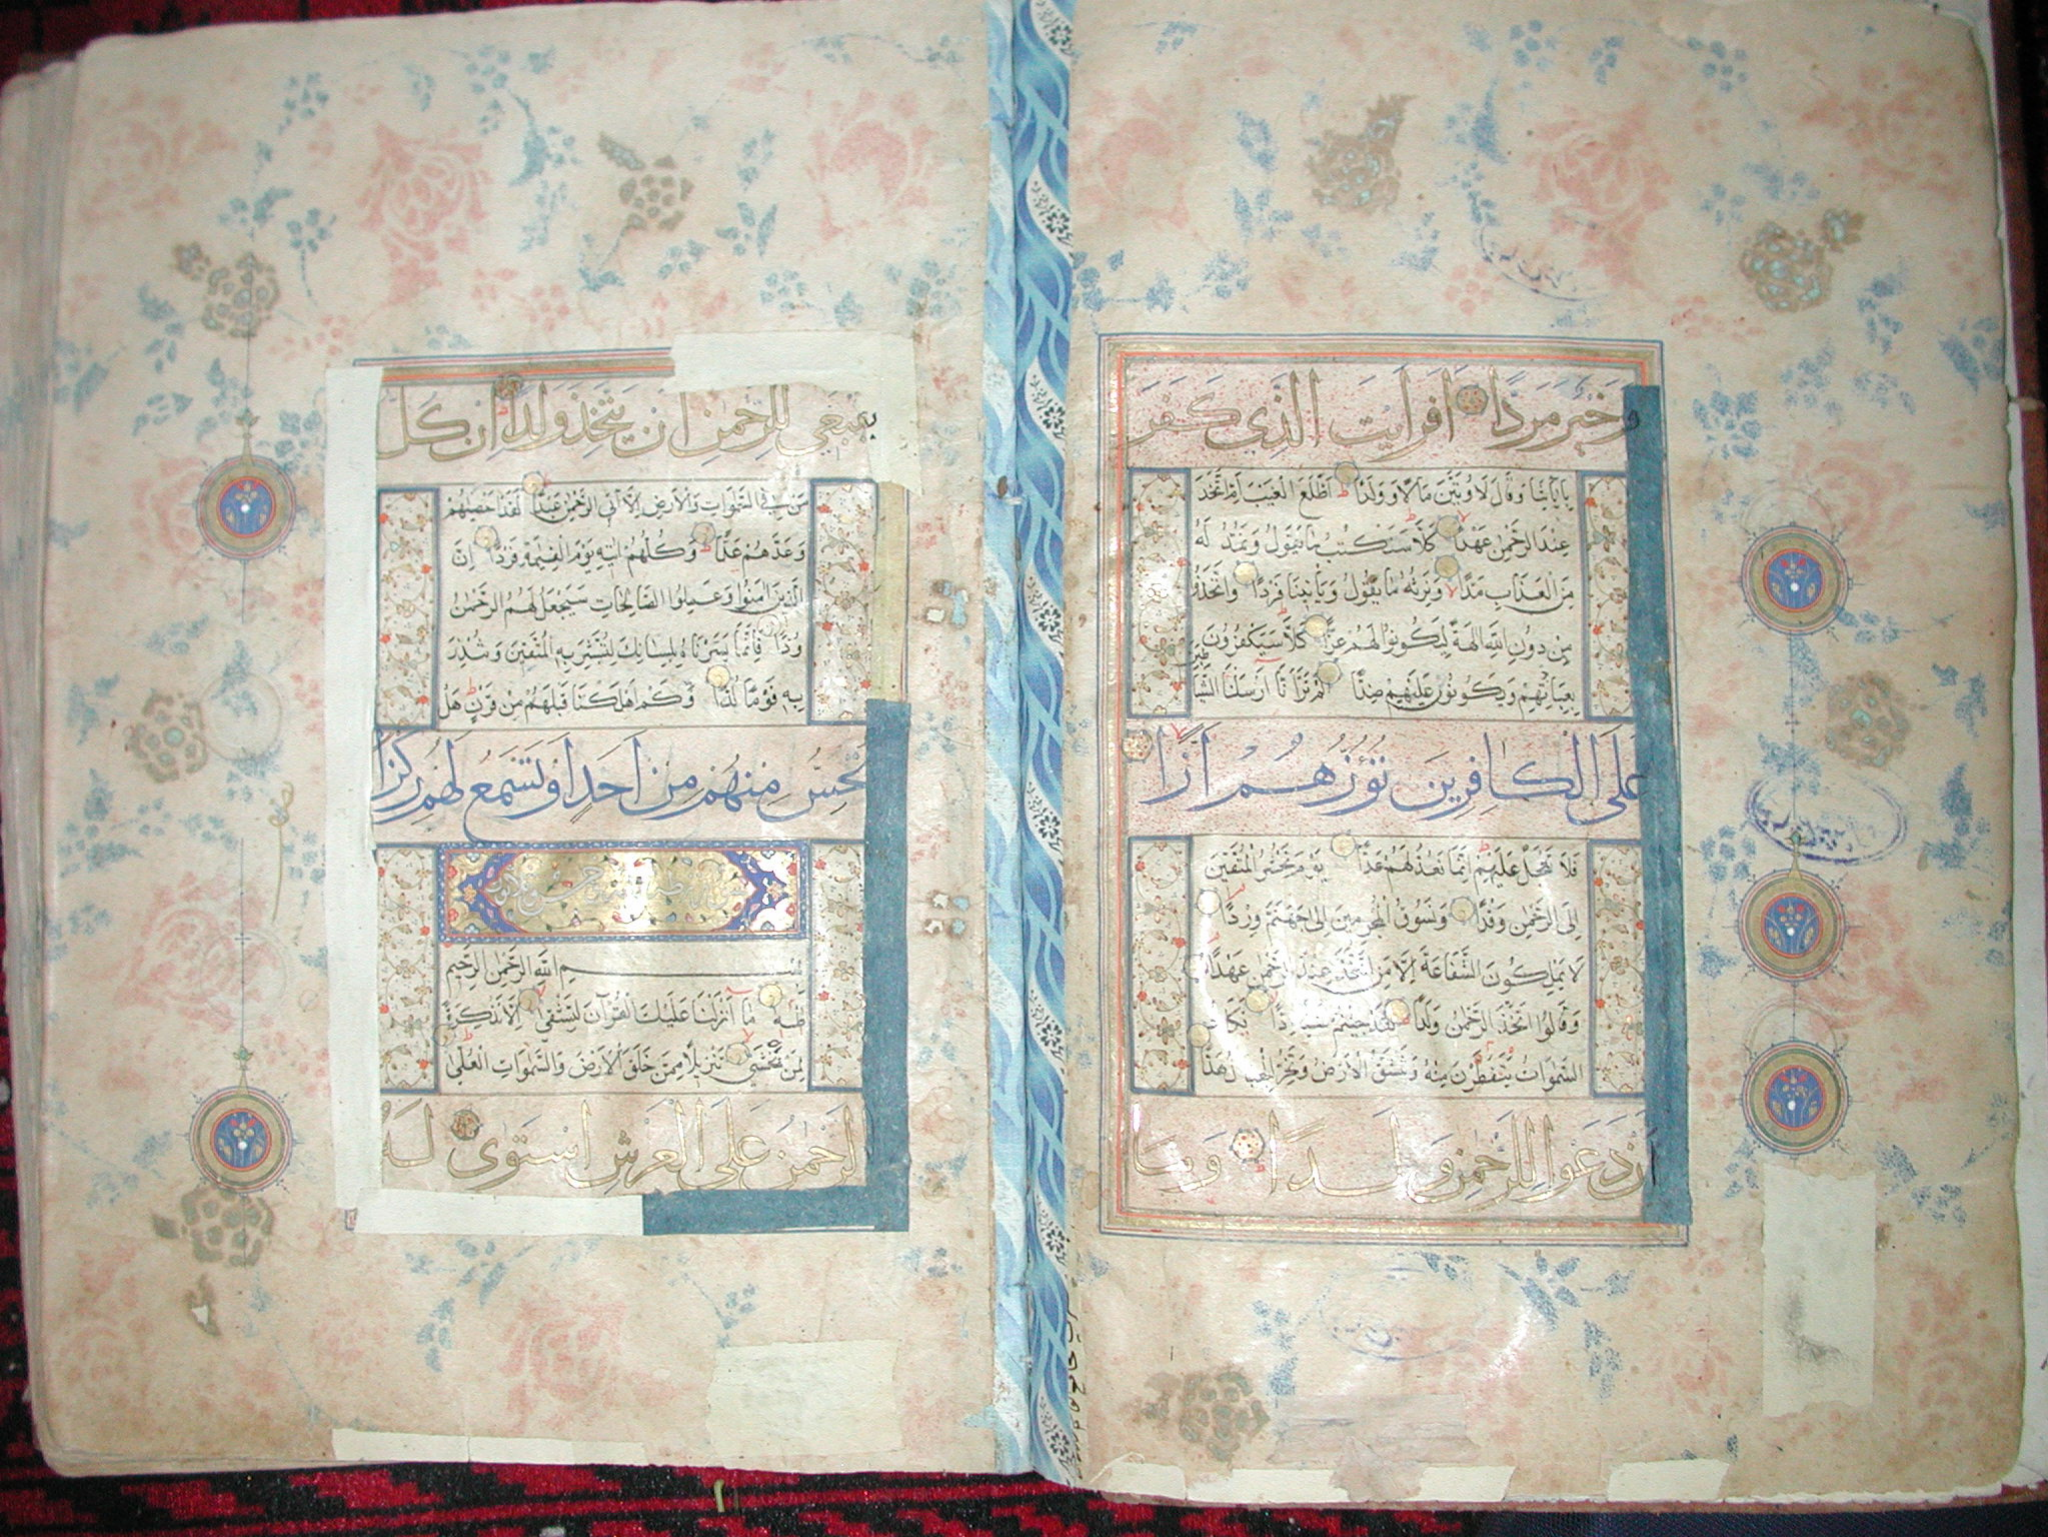 وَخَيْرٌ مَرَدًّا أَفَرَأَيْتَ الَّذِي كَفَرَ
بِآيَاتِنَا وَقَالَ لَأُوتَيَنَّ مَالًا وَوَلَدًا اَطَّلَعَ الْغَيْبَ أَمِ اتَّخَذَ
عِنْدَ الرَّحْمٰنِ عَهْدًا كَلَّا سَنَكْتُبُ مَا يَقُولُ وَنَمُدُّ لَهُ
مِنَ الْعَذَابِ مَدًّا وَنَرِثُهُ مَا يَقُولُ وَيَأْتِينَا فَرْدًا وَاتَّخَذُوا
مِنْ دُونِ اللَّهِ آلِهَةً لِيَكُونُوا لَهُمْ عِزًّا كَلَّا سَيَكْفُرُونَ
بِعِبَادَتِهِمْ وَيَكُونُونَ عَلَيْهِمْ ضِدًّا أَلَمْ تَرَ أَنَّا أَرْسَلْنَا الشَّيَاطِينَ
عَلَى الْكَافِرِينَ تَؤُزُّهُمْ أَزًّا
فَلَا تَعْجَلْ عَلَيْهِمْ إِنَّمَا نَعُدُّ لَهُمْ عَدًّا يَوْمَ نَحْشُرُ الْمُتَّقِينَ
إِلَى الرَّحْمٰنِ وَفْدًا وَنَسُوقُ الْمُجْرِمِينَ إِلَى جَهَنَّمَ وِرْدًا
لَا يَمْلِكُونَ الشَّفَاعَةَ إِلَّا مَنِ اتَّخَذَ عِنْدَ الرَّحْمٰنِ عَهْدًا
وَقَالُوا اتَّخَذَ الرَّحْمٰنُ وَلَدًا لَقَدْ جِئْتُمْ شَيْئًا إِدًّا تَكَادُ
السَّمٰوَاتُ يَتَفَطَّرْنَ مِنْهُ وَتَنْشَقُّ الْأَرْضُ وَتَخِرُّ الْجِبَالُ هَدًّا
أَنْ دَعَوْا لِلرَّحْمٰنِ وَلَدًا وَمَا
يَنْبَغِي لِلرَّحْمٰنِ أَنْ يَتَّخِذَ وَلَدًا إِنْ كُلُّ
مَنْ فِي السَّمٰوَاتِ وَالْأَرْضِ إِلَّا آتِي الرَّحْمٰنِ عَبْدًا لَقَدْ أَحْصٰيهُمْ
وَعَدَّهُمْ عَدًّا وَكُلُّهُمْ آتِيهِ يَوْمَ الْقِيٰمَةِ فَرْدًا إِنَّ
الَّذِينَ آمَنُوا وَعَمِلُوا الصَّالِحَاتِ سَيَجْعَلُ لَهُمُ الرَّحْمٰنُ
وُدًّا فَإِنَّمَا يَسَّرْنَاهُ بِلِسَانِكَ لِتُبَشِّرَ بِهِ الْمُتَّقِينَ وَتُنْذِرَ
بِهِ قَوْمًا لُدًّا وَكَمْ أَهْلَكْنَا قَبْلَهُمْ مِنْ قَرْنٍ هَلْ
تُحِسُّ مِنْهُمْ مِنْ أَحَدٍ أَوْ تَسْمَعُ لَهُمْ رِكْزًا
بِسْمِ اللَّهِ الرَّحْمٰنِ الرَّحِيمِ
طٰهٰ مَا أَنْزَلْنَا عَلَيْكَ الْقُرْآنَ لِتَشْقٰى إِلَّا تَذْكِرَةً
لِمَنْ يَخْشٰى تَنْزِيلًا مِمَّنْ خَلَقَ الْأَرْضَ وَالسَّمٰوَاتِ الْعُلٰى
الرَّحْمٰنُ عَلَى الْعَرْشِ اسْتَوٰى لَهُ